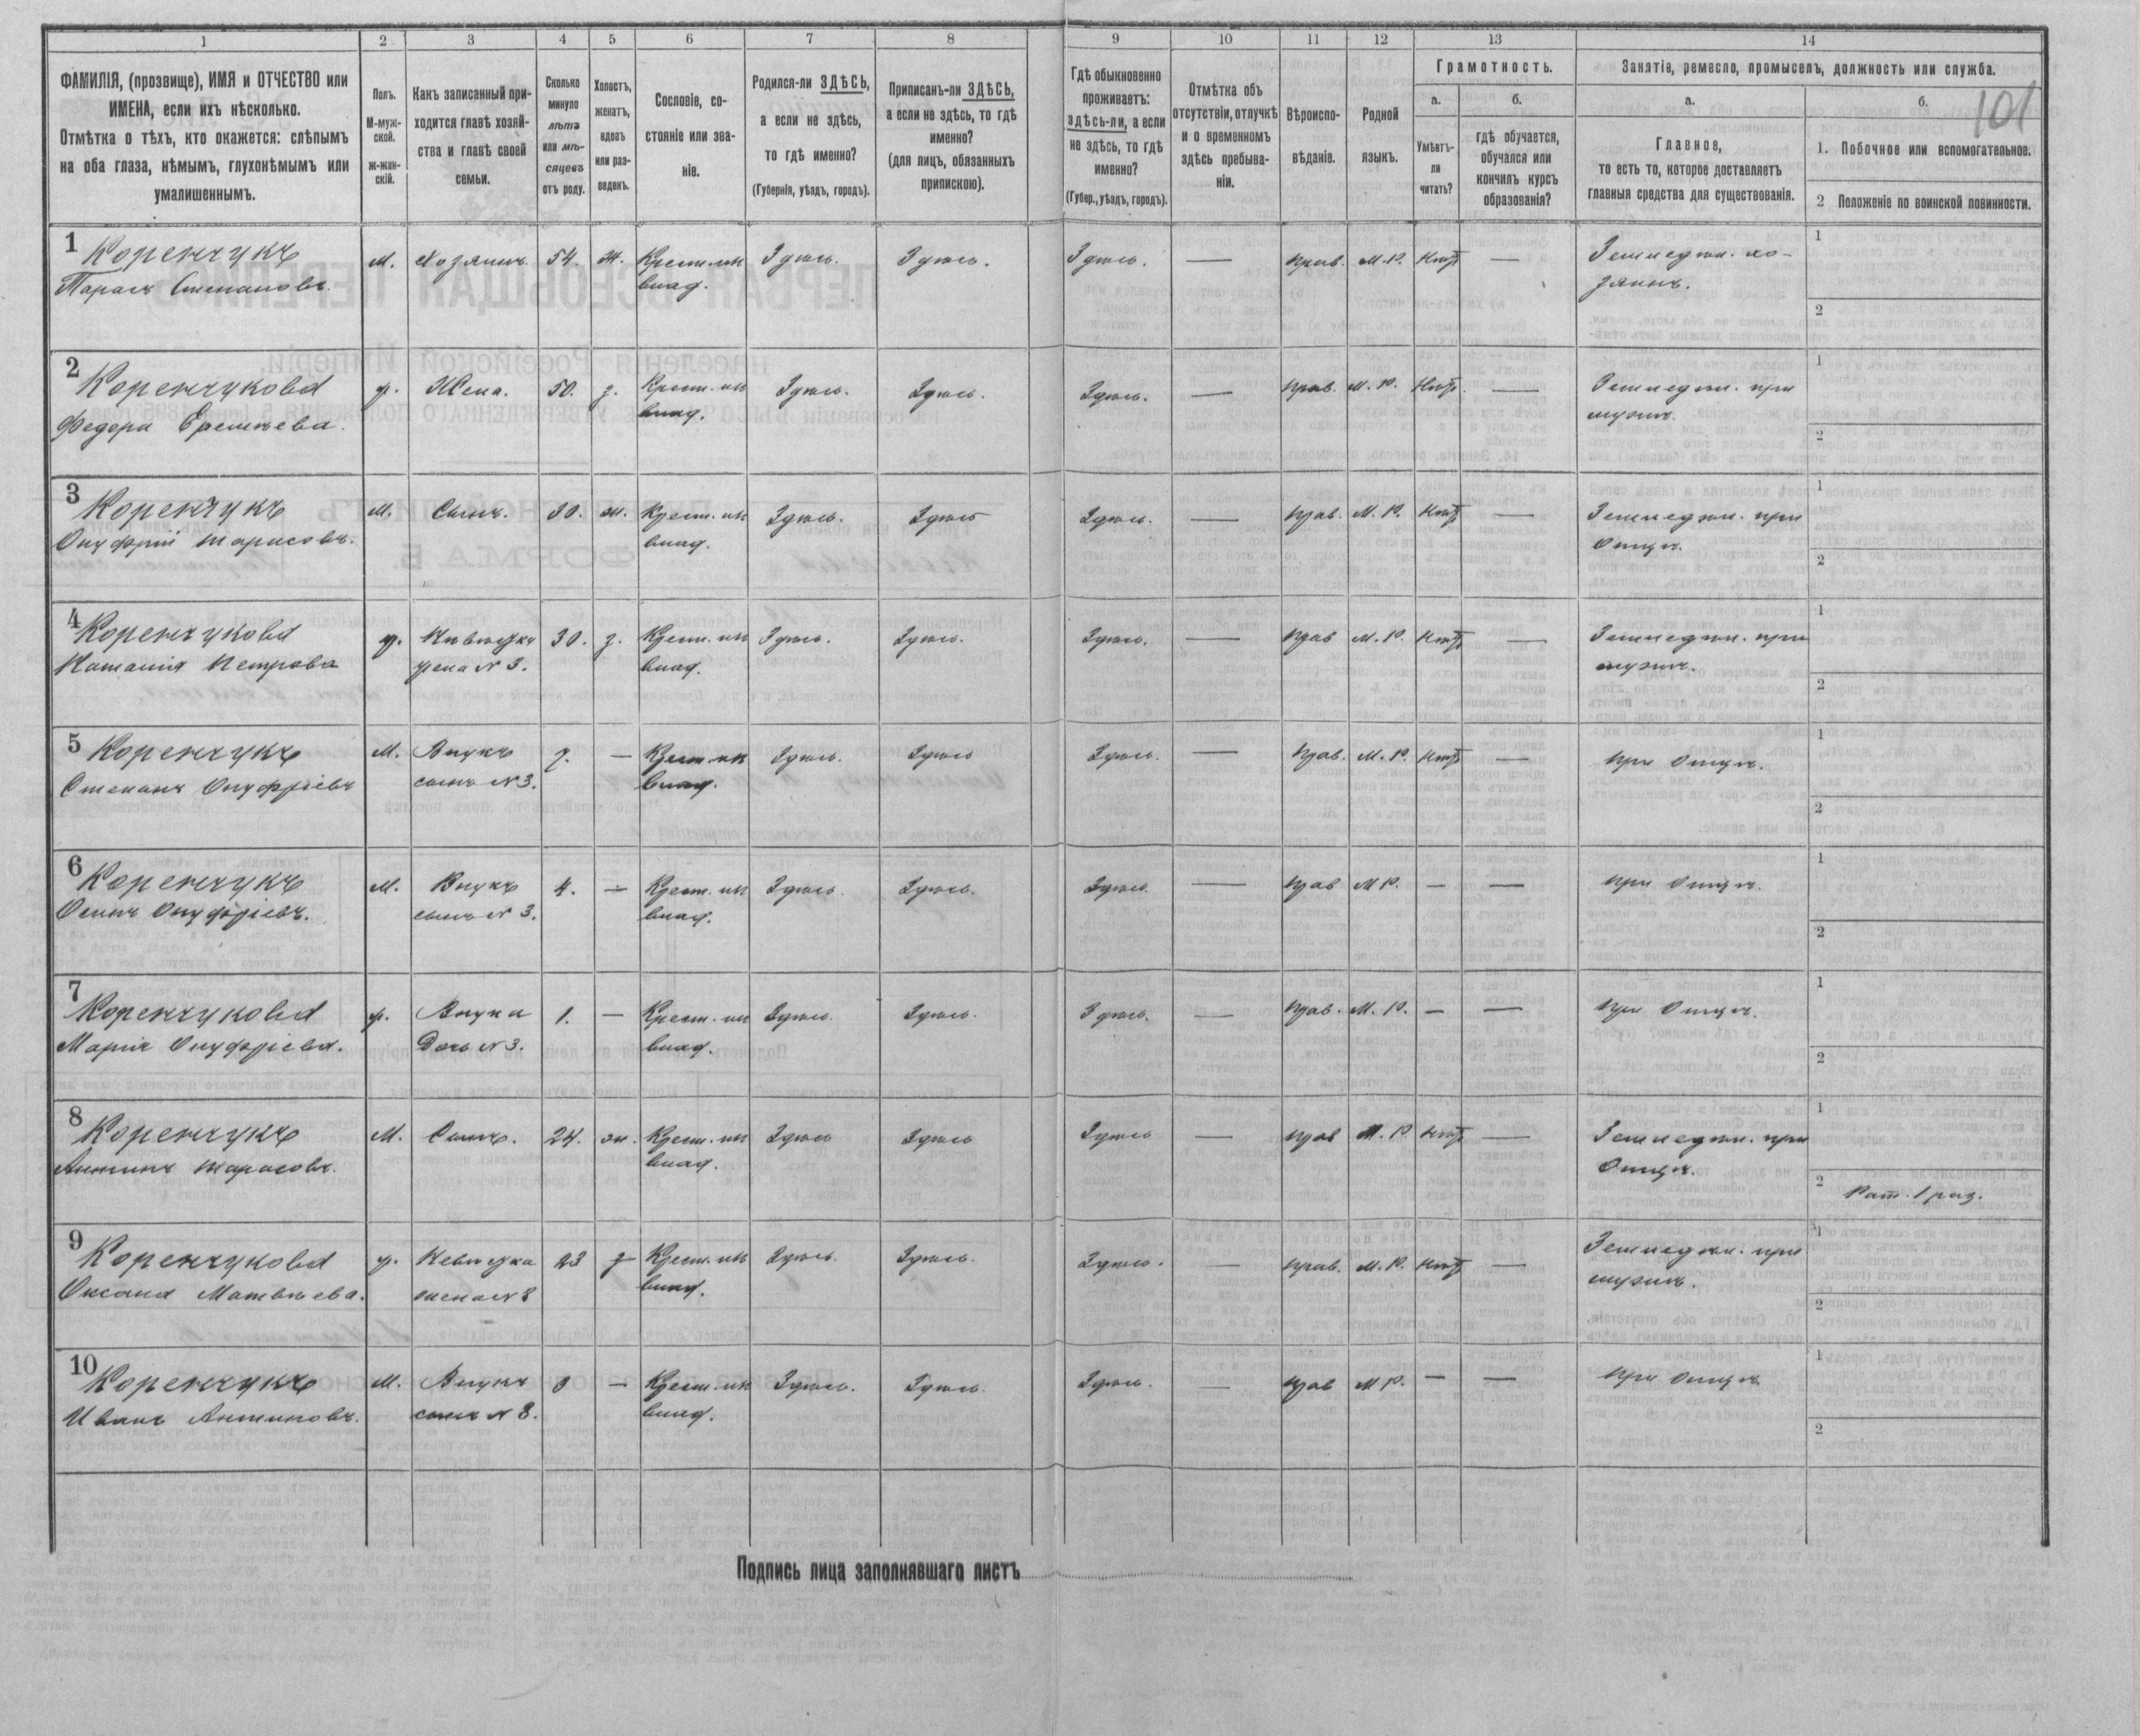 1 2 3 4 5 6 7 8 9 10 11 12 13 14
ФАМИЛІЯ, (прозвище), ИМЯ и ОТЧЕСТВО или
ИМЕНА, если ихъ нѣсколько.
Отмѣтка о тѣхъ, кто окажется: слѣпымъ
на оба глаза, нѣмымъ, глухонѣмымъ или
умалишеннымъ.
Полъ.
М-муж-
ской.
ж-жен-
скій.
Какъ записанный при-
ходится главѣ хозяй-
ства и главѣ своей
семьи.
Сколько
минуло
лѣтъ
или мѣ-
сяцевъ
отъ роду.
Холостъ,
женатъ,
вдовъ
или раз-
веденъ.
Сословіе, со-
стояніе или зва-
ніе.
Родился-ли ЗДѢСЬ,
а если не здѣсь,
то гдѣ именно?
(Губернія, уѣздъ, городъ).
Приписанъ-ли ЗДѢСЬ,
а если не здѣсь, то гдѣ
именно?
(для лицъ, обязанныхъ
припискою).
Гдѣ обыкновенно
проживаетъ:
здѣсь-ли, а если
не здѣсь, то гдѣ
именно?
(Губер., уѣздъ, городъ).
Отмѣтка объ
отсутствіи, отлучкѣ
и о временномъ
здѣсь пребыва-
ніи.
Вѣроиспо-
вѣданіе.
Родной
языкъ.
Грамотность.
а.
Умѣетъ-
ли
читать?
б.
гдѣ обучается,
обучался или
кончилъ курсъ
образованія?
Занятіе, ремесло, промыселъ, должность или служба.
а.
Главное,
то есть то, которое доставляетъ
главныя средства для существованія.
б.
101
1. Побочное или вспомогательное.
2 Положеніе по воинской повинности.
1 Коренчукъ М. Хозяинъ. 54. ж. Крест. ик Здѣсь. Здѣсь. Здѣсь. — прав. М.Р. Нѣтъ — Земледѣл. хо- 1
Тарасъ Степановъ. влад. зяинъ. 2
2 Коренчукова ж. Жена. 50. з. Крест. ик Здѣсь. Здѣсь. Здѣсь. — прав. М.Р. Нѣтъ — Земледѣл. при 1
Федора Еремѣева. влад. мужѣ. 2
3 Коренчукъ М. Сынъ. 30. ж. Крест. ик Здѣсь. Здѣсь Здѣсь. — прав. М.Р. Нѣтъ — Земледѣл. при 1
Онуфрій Тарасовъ. влад. Отцѣ. 2
4 Коренчукова ж. Невѣстка 30. з. Крест. ик Здѣсь. Здѣсь. Здѣсь. — прав М.Р. Нѣтъ — Земледѣл. при 1
Наталія Петрова жена № 3. влад. мужѣ. 2
5 Коренчукъ М. Внукъ 7. — Крест. ик Здѣсь. Здѣсь Здѣсь. — прав. М.Р. Нѣтъ — при Отцѣ. 1
Степанъ Онуфріевъ сынъ № 3. влад. 2
6 Коренчукъ М. Внукъ 4. — Крест. ик Здѣсь. Здѣсь. Здѣсь — прав М Р. — — при Отцѣ. 1
Осипъ Онуфріевъ. сынъ № 3. влад. 2
7 Коренчукова ж. Внука 1. — Крест. ик Здѣсь. Здѣсь. Здѣсь. — прав. М.Р. — — при Отцѣ. 1
Марія Онуфріева. Дочь № 3. влад. 2
8 Коренчукъ М. Сынъ. 24. ж. Крест. ик Здѣсь Здѣсь Здѣсь — прав М.Р. Нѣтъ — Земледѣл. при 1
Антинъ Тарасовъ. влад. Отцѣ. 2 Рат. 1 раз.
9 Коренчукова ж. Невѣстка 23 з Крест. ик Здѣсь. Здѣсь. Здѣсь. — прав. М.Р. Нѣтъ — Земледѣл. при 1
Оксана Матвѣева. жена № 8 влад. мужѣ. 2
10 Коренчукъ М. Внукъ 0 — Крест. ик Здѣсь. Здѣсь. Здѣсь. — прав М Р. — — при Отцѣ 1
Иванъ Антиновъ. сынъ № 8. влад. 2
Подпись лица заполнявшаго листъ